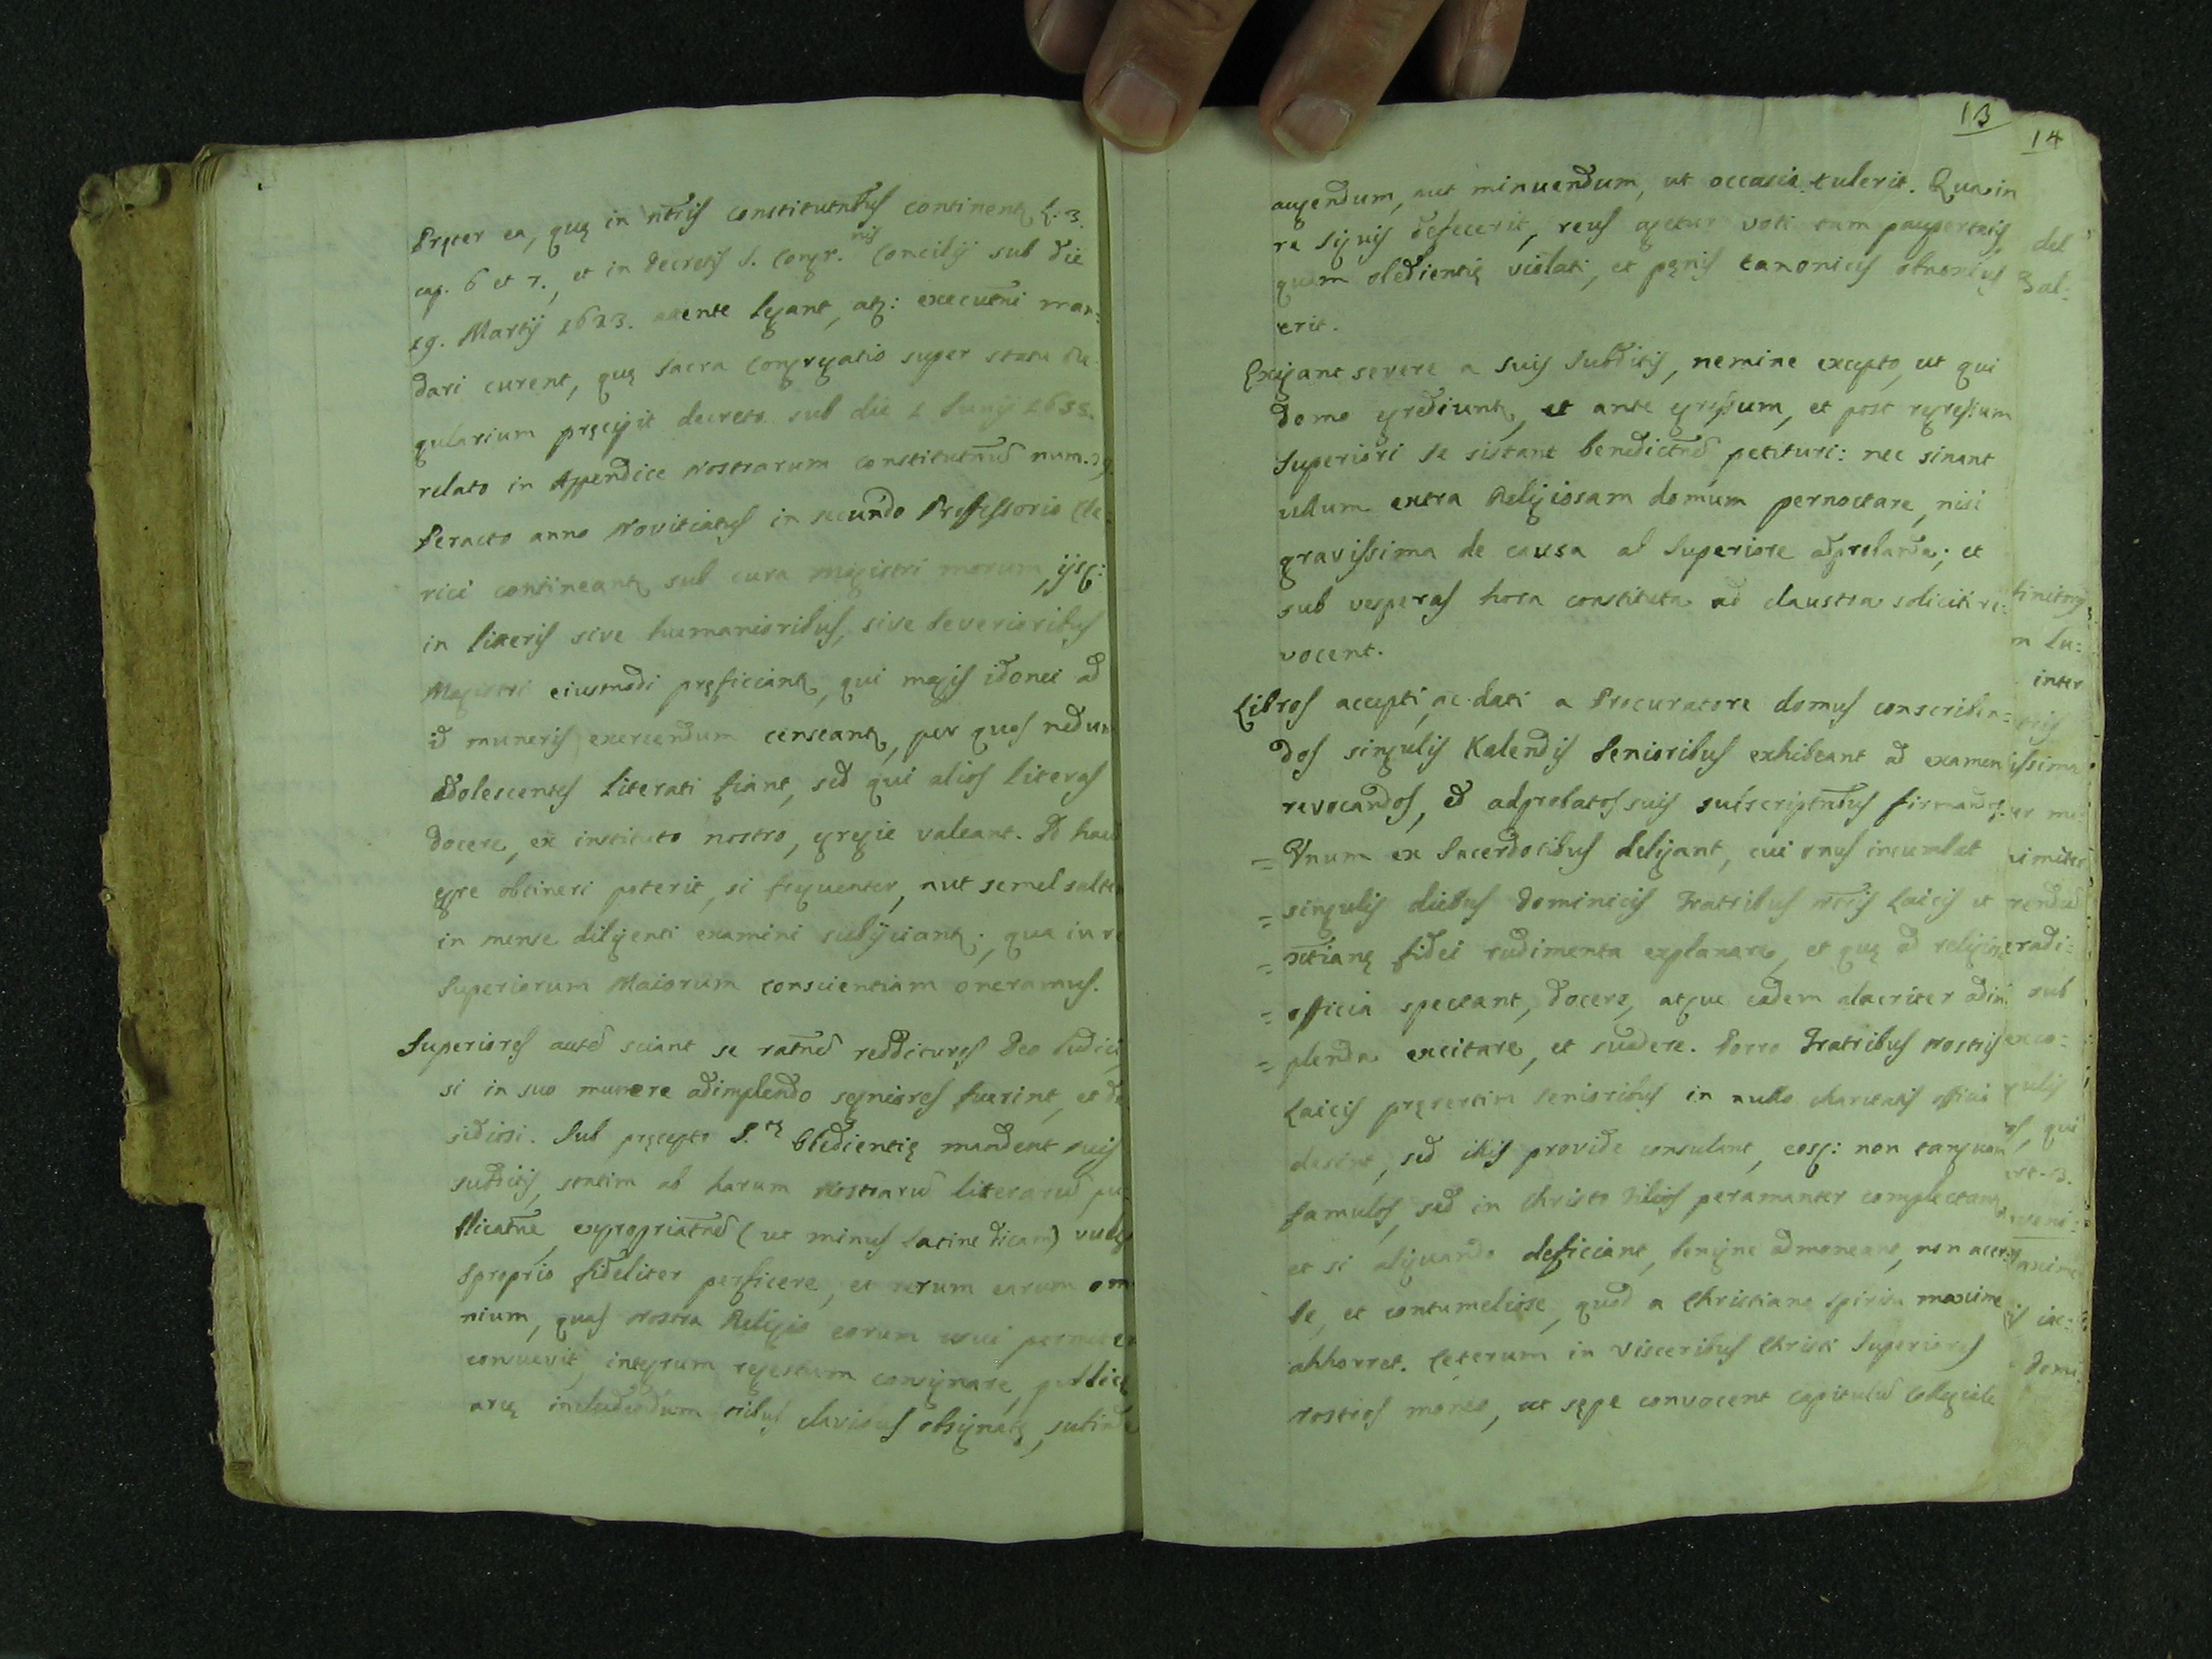 Pręter ea, quę in nr̃is constitutñibus continentʒ L. 3.
cap. 6 et 7., et in decretis S. Congr.nis Concilij sub die
19. Martij 1623. attente legant, atq: executñi man:
dari curent, quę Sacra Congregatio super statu Re
gularium pręcipit decreto sub die 1 Iunij 1655.
relato in Appendice Nostrarum constitutnũ num. 39.
Peracto anno Novitiatus in secundo Professorio Cle
rici contineantʒ sub cura Magistri morum, ijsq:
in literis sive humanioribus, sive severioribus
Magistri eiusmodi pręficiantʒ, qui magis idonei ad
id muneris exercendum censeantʒ, per quos nedum
adolescentes literati fiant, sed qui alios literas
docere, ex instituto nostro, egregie valeant. Id haud
ęgre obtineri poterit, si frequenter, aut semel saltem
in mense diligenti examini subijciantʒ; qua in re
Superiorum Maiorum conscientiam oneramus.
Superiores autẽ sciant se ratñẽ reddituros Deo Iudici,
si in suo munere adimplendo segniores fuerint, et de
sidiosi. Sub pręcepto S.tę Obedientię mandent suis
subditis, statim ab harum Nostrarũ literarũ pu
blicatñe, expropriatñẽ (ut minus latine dicam) vulgo
Sproprio fideliter perficere, et rerum earum om
nium, quas Nostra Religio eorum usui permittere
consuevit, integrum regestum consignare, publicę
arcę includendum tribus clavibus obsignatę, subinde
13
14
augendum, aut minuendum, ut occasio tulerit. Qua in
re siquis defecerit, reus agetur voti tam paupertatis,
quam obedientię violati, et pęnis canonicis obnoxius
erit.
Exigant severe a suis subditis, nemine excepto, ut qui
domo egrediuntʒ, et ante egressum, et post regressum
Superiori se sistant benedictñẽ petituri: nec sinant
ullum extra Religiosam domum pernoctare, nisi
gravissima de causa a Superiore adprobanda; et
sub vesperas hora constituta ad claustra soliciti re:
vocent.
Libros accepti, ac dati a Procuratore domus conscriben:
dos singulis Kalendis Senioribus exhibeant ad examen
revocandos, & adprobatos suis subscriptñibus firmandos.
= Vnum ex Sacerdotibus deligant, cui onus incumbat
= singulis diebus Dominicis Fratribus nr̃is Laicis et
= xt̃ianę fidei rudimenta explanare, et quę ad religionis
= officia spectant, docere, atque eadem alacriter adim
= plenda excitare, et suadere. Porro Fratribus Nostris
Laicis pręsertim Senioribus in nullo charitatis officio
desint, sed illis provide consulant, eosq: non tanquam
famulos, sed in Christo filios peramanter complectantʒ,
et si aliquando deficiant, benigne admoneant, non acer:
be, et contumeliose, quod a Christiano spiritu maxime
abhorret. Ceterum in visceribus Christi Superiores
nostros moneo, ut sępe convocent Capitulũ Collegiale
del
3 al:
m Lu:
inter
issima
eradi:
sub
exco:
gulis
qui
domi